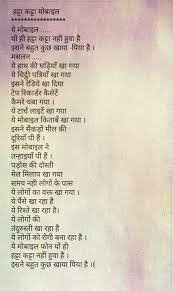 हट्टा कट्टा मोबाइल
******************
ये मोबाइल .....
यों ही हट्टा कट्टा नहीं हुवा है
इसने बहुत कुछ खाया -पिया है ।
मसलन .....
ये हाथ की घड़ियाँ खा गया
ये चिट्ठी पत्रियाँ खा गया
इसने रेडियो खा दिया
टेप रिकार्डर कैसेटें
कैमरे चबा गया ।
ये मोबाइल किताबें खा गया ।
इसने सैकड़ों मील की
दुरियाँ पी हैं ।
इस मोबाइल ने
तन्हाइयाँ पी हैं ।
पड़ोस की दोस्ती
मेल मिलाप खा गया
समय नही लोगों के पास
ये लोगों का वक्त खा गया ।
ये पैसे खा रहा है
ये रिश्ते खा रहा है।
ये लोगों की
तंदुरुस्ती खा रहा है
ये लोगों को रोगी बना रहा है ।
ये मोबाईल फोन यों ही
हट्टा कट्टा नहीं हुवा है ।
इसने बहुत कुछ खाया पिया है ।।